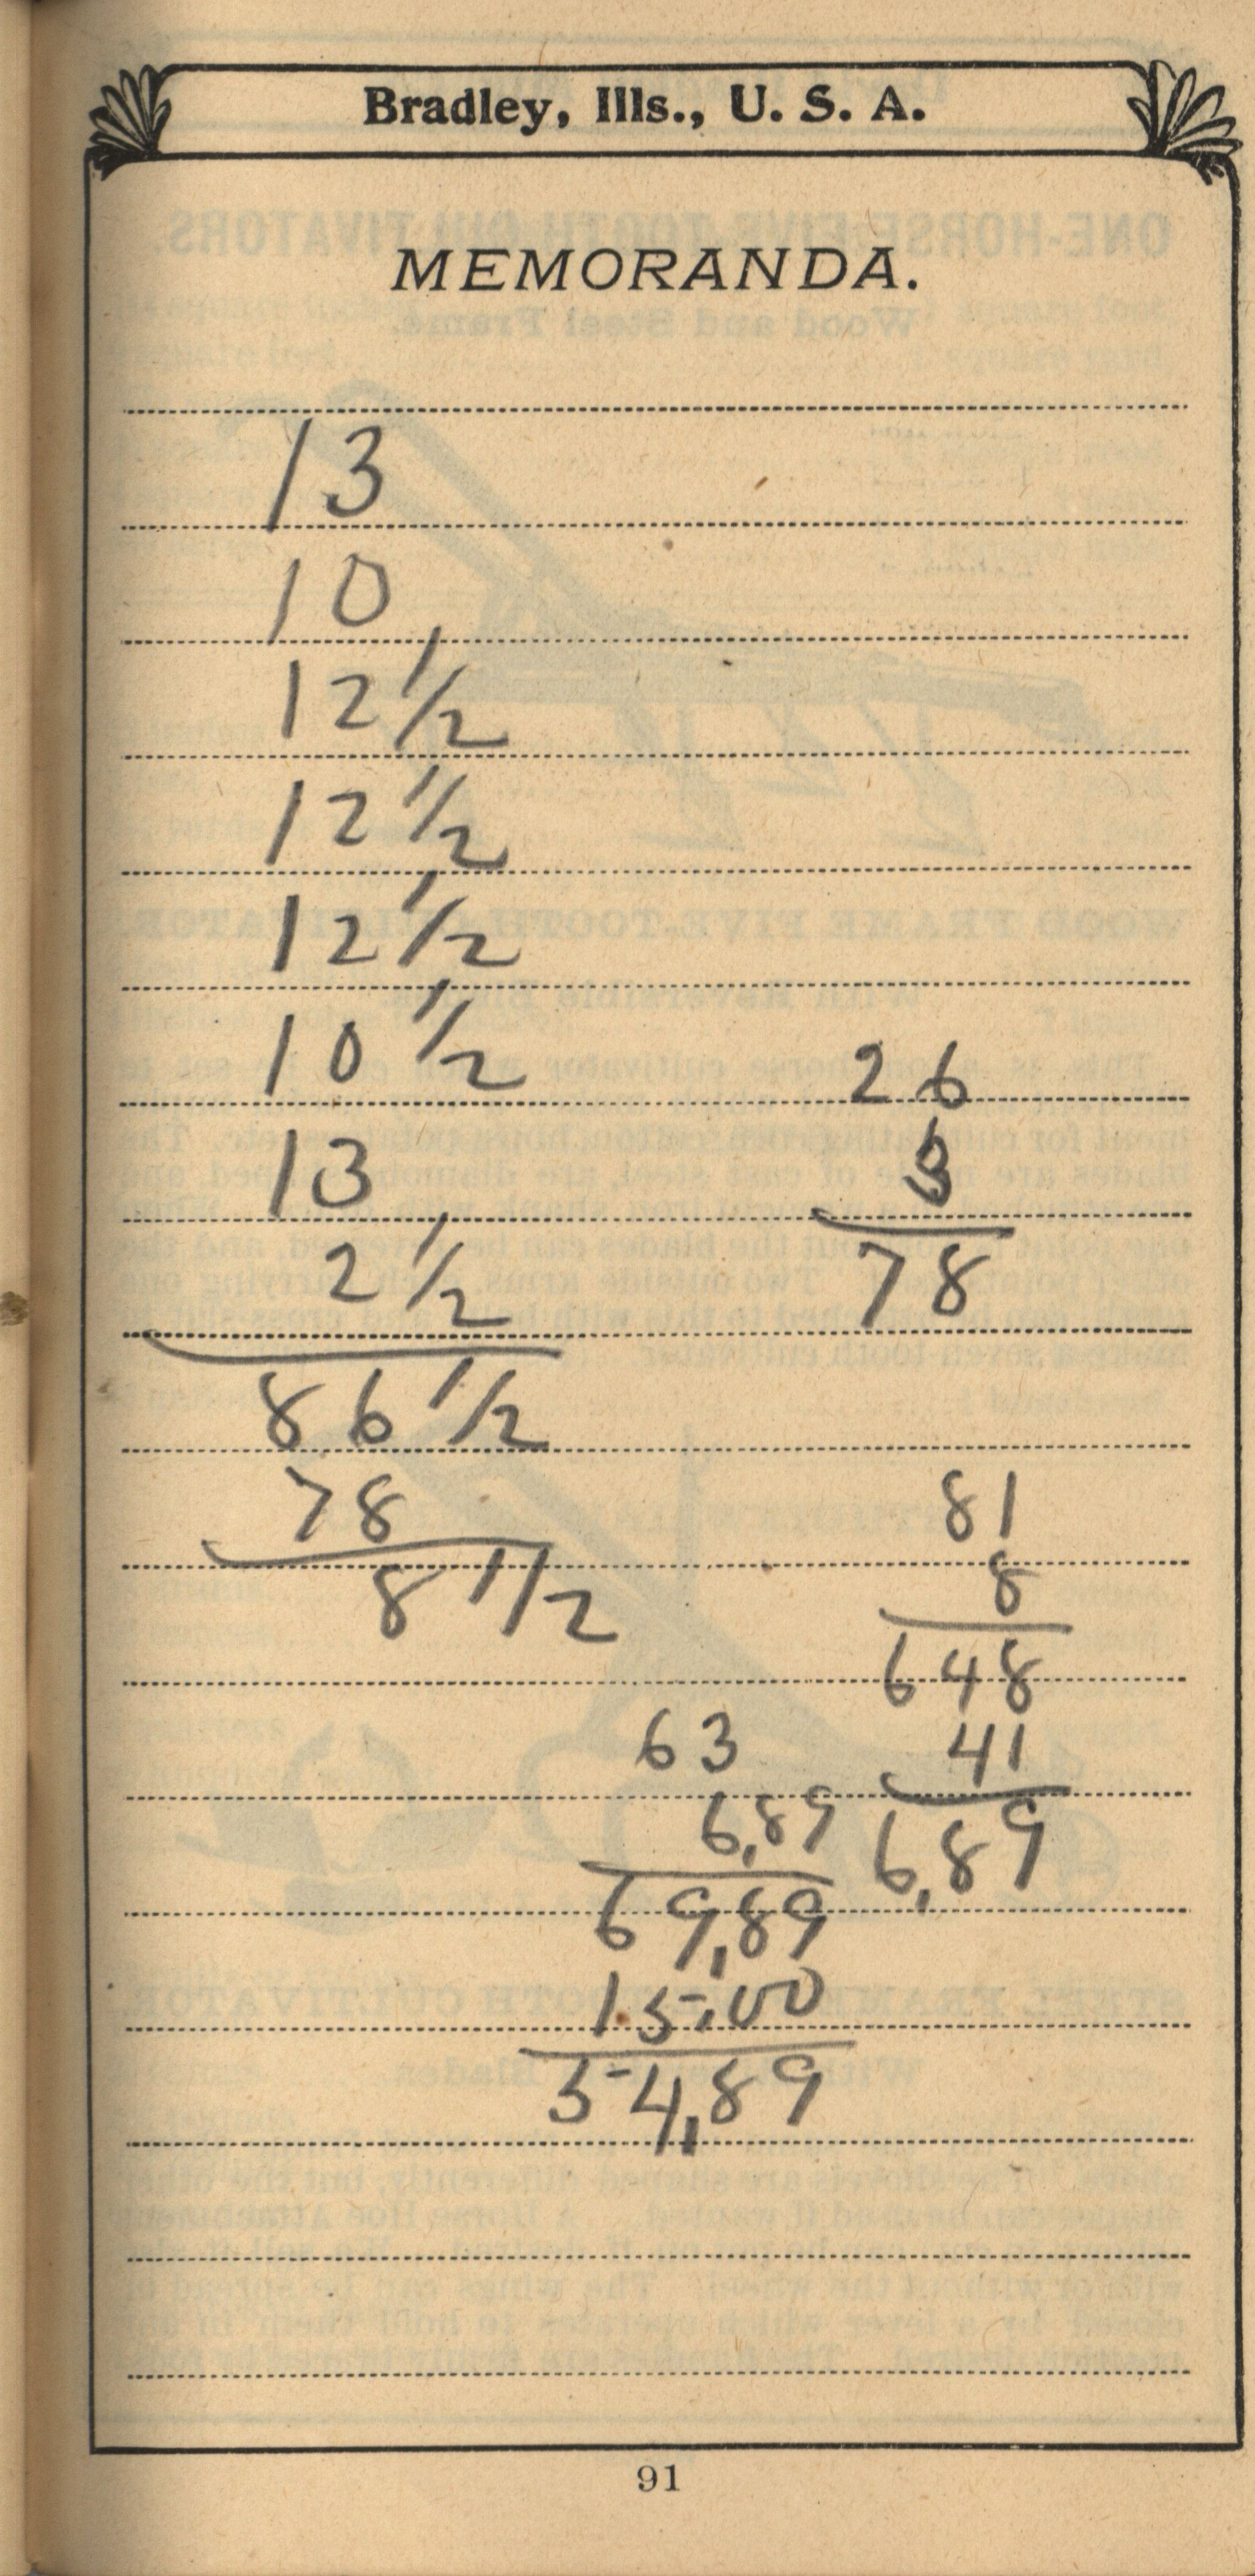 Bradley, Ills., U. S. A.
MEMORANDA.
13
10
12 1/2
12 1/2
12 1/2
10 1/2
13
2 1/2
86 1/2
78
8 1/2
26
3
78
81
8
648
41
6,89
63
6,89
69,89
15,00
54,89
91